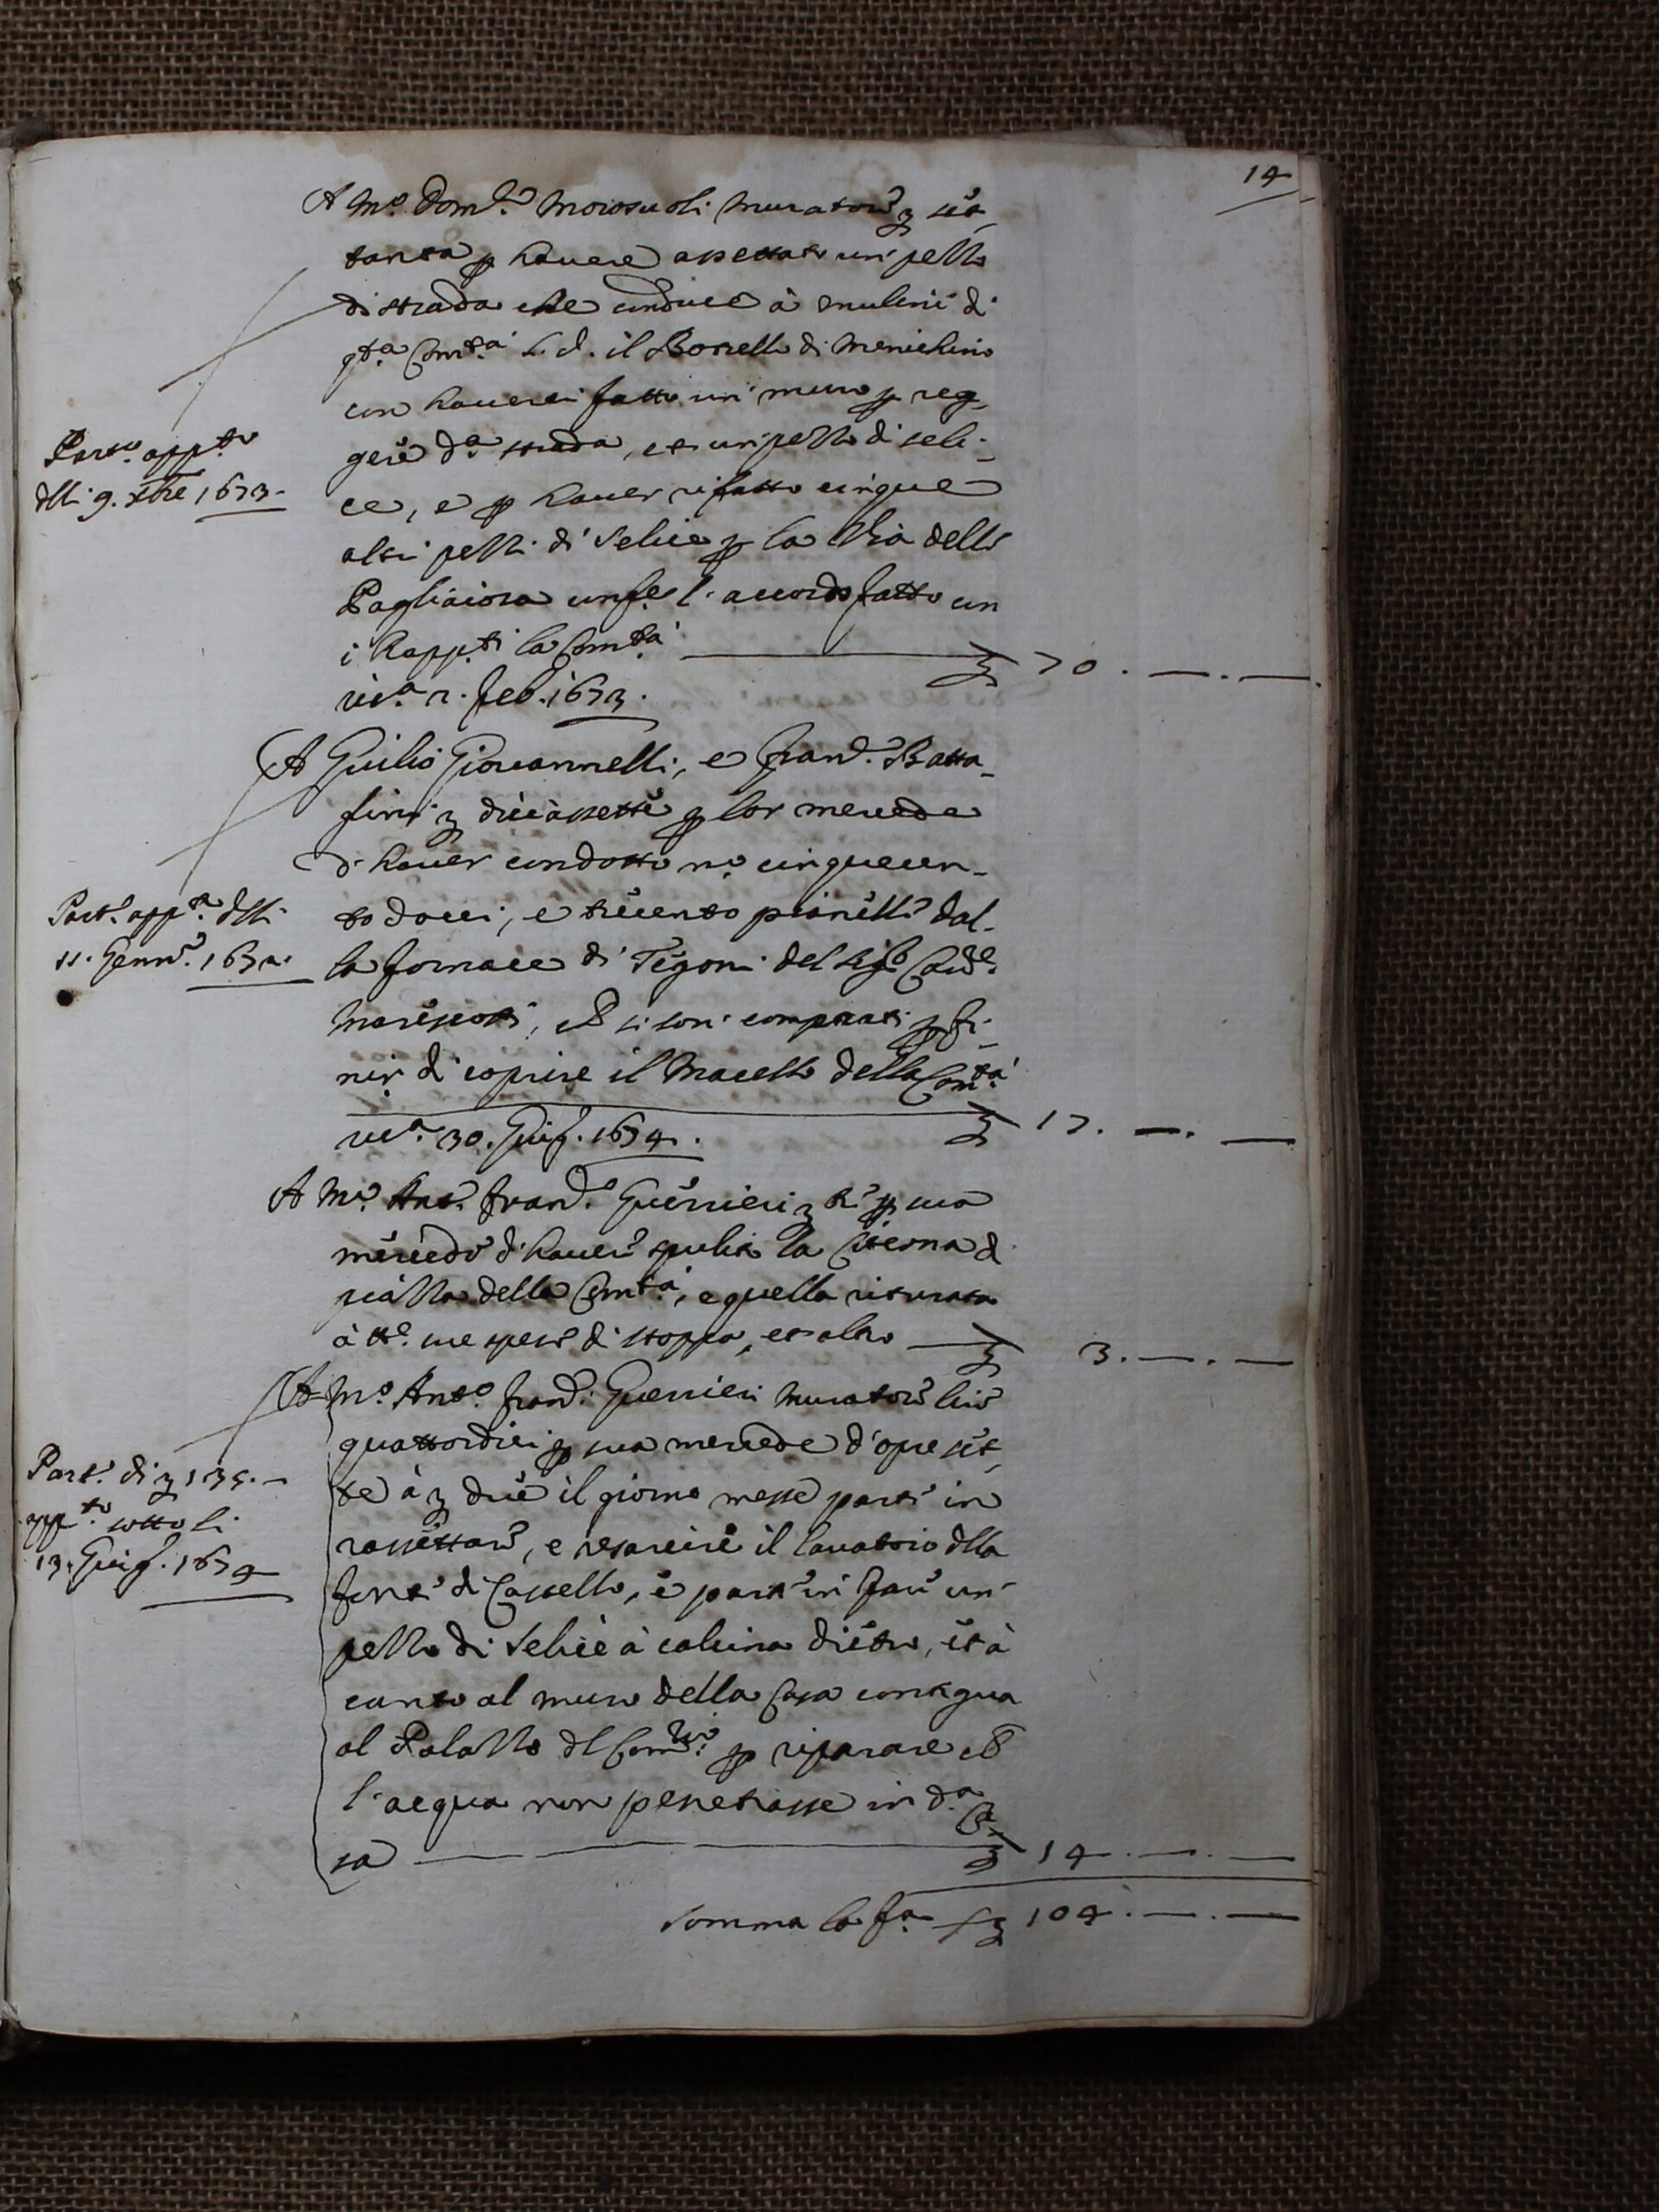 14
A Mº Domcº Morosuoli muratore £ set-
tanta p hauere assettato un pezzo
di strada che conduce à mulini di
qta Comtà l. d. il Borrello di Menichino
con hauerci fatto un muro p reg-
gere da strada, et un pezzo di seli-
ce, e p hauer rifatto cinque
altri pezzi di selice p la Via della
Pagliaiora confe l'accordo fatto con
i Rappti la Comtà £ 70. —. —.
Parto appto
dlli 9. Xbre 1673.
uta 2. feb. 1673.
A Giulio Giouannelli, e Franco Batta-
fini £ diciassette p lor mercede
d'hauer condotto no cinquecen-
to docci, e trecento pianelli dal-
la fornace di Tegoni del Sigr Caude
Marescotti, che si son comprati p fi-
nir di coprire il Macello della Comtà
£ 17. —. —
Parto appto dlli
11. Gennro 1672.
uta 30. Giug. 1674.
A Mº Anto Franco Guerrieri £ tre p sua
mercede d'hauere pulita la Citerna di
piazza della Comtà, e quella risturata
à tte sue spese di stoppa, et altro £ 3. —. —
A Mº Anto Franco Guerrieri muratore lire
quattordici p sua mercede d'opre set-
te à £ due il giorno messe parte in
rassettare, e resarcire il lauatoio dlla
fonte di Castello, e parte in fare un
pezzo di selice à calcina dietro, et à
canto al muro della Casa contigua
al Palazzo dl Comrio p riparare che
l'acqua non penetrasse in da Ca-
sa £ 14. —. —
Parto di £ 135. —
appto sotto li
13. Giug. 1674
Somma la fa £ 104. —. —